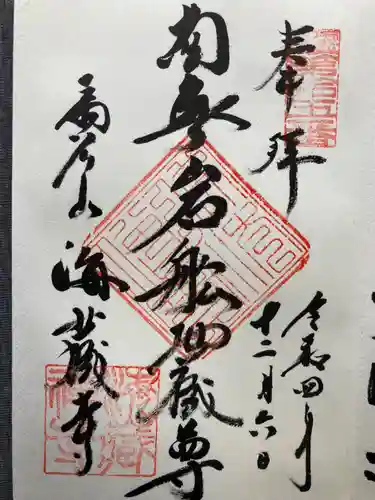 奉拝
令和四年
十二月六日
南無岩船地蔵尊
扇谷山
海蔵寺